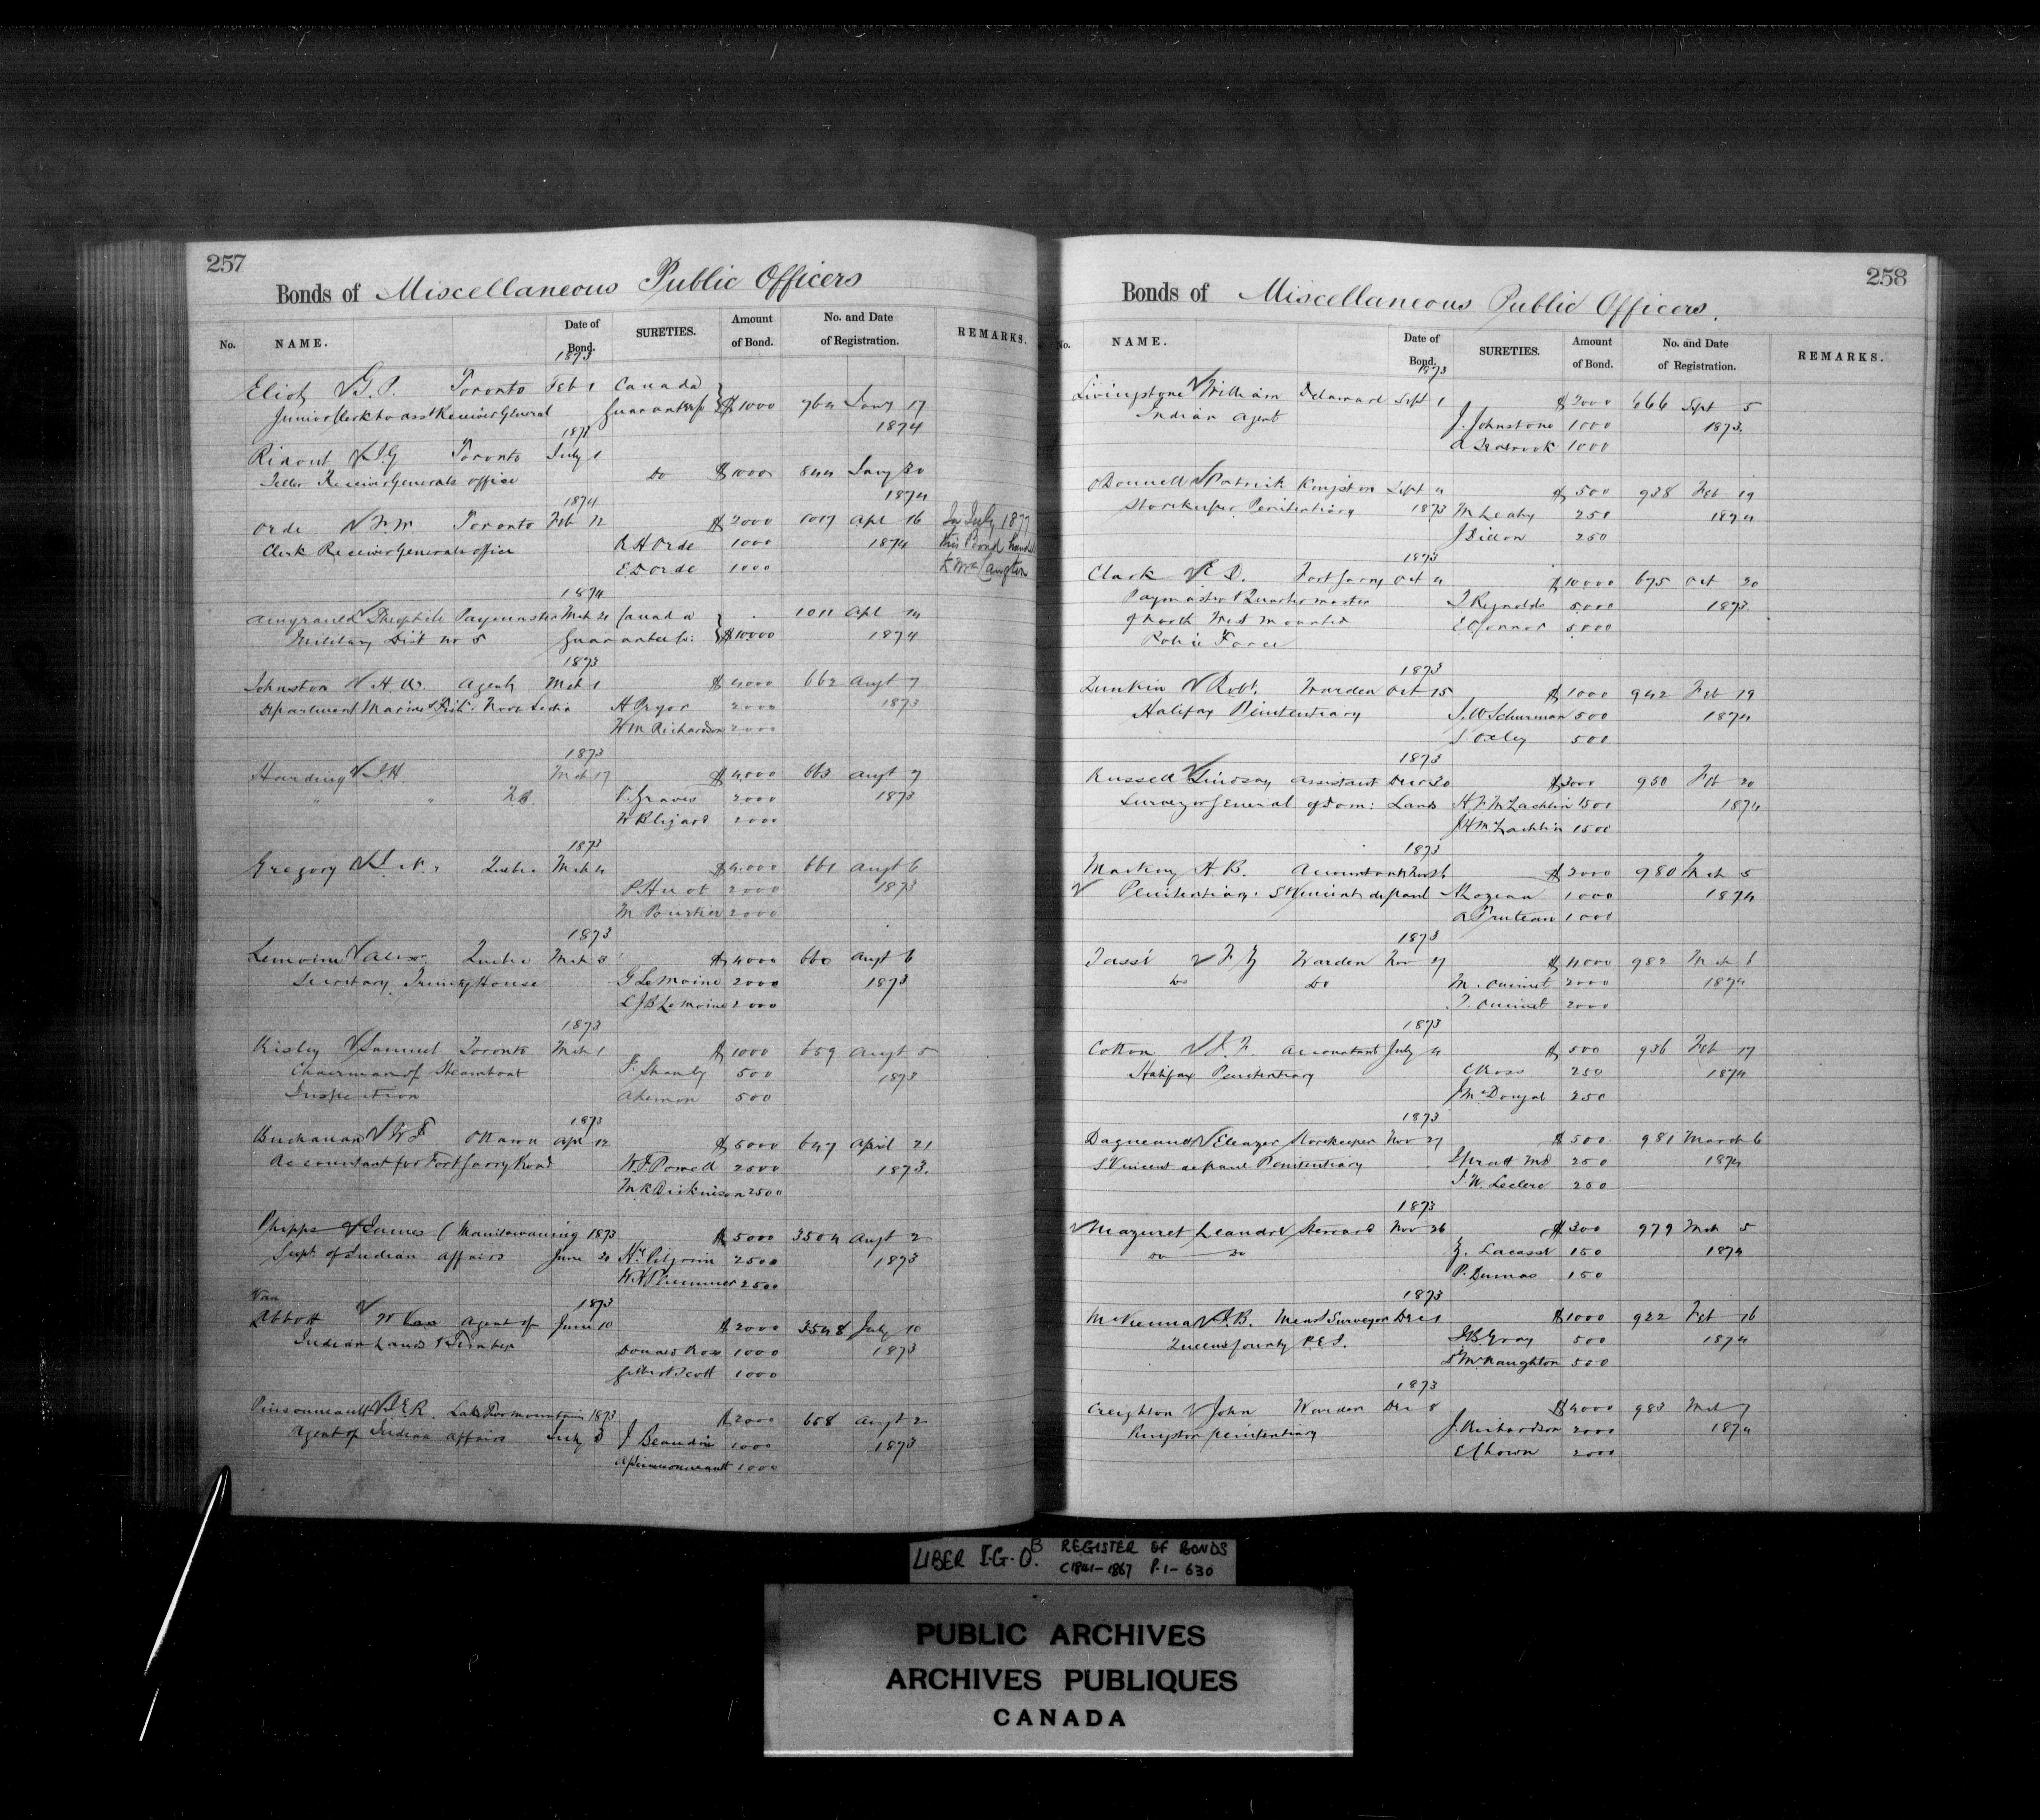 257
Bonds of Miscellaneous Public Officers
No. NAME. Date of Bond. SURETIES. Amount of Bond. No. and Date of Registration. REMARKS.
1873
Eliot G.P. Toronto Feb 1 Canada
Junior Clerk to asst Receiver General Guarantee Co $1000 764 Jany 17
1874
Ridout Toronto July 1
Teller Receiver Generals office Do $1000 844 Jany 30
1874 1874
Orde Toronto Feb 12 $2000 1007 Apl 16 In July 1877
Clerk Receiver Generals office R H Orde 1000 1874 this Bond handed
E D Orde 1000 to Mr Langton
1874
Theophile Paymaster Mch 20 Canada 1011 Apl 14
Military Dist no 5 Guarantee Co: $10000 1874
1873
Johnston H.W. Agent Mch 1 $4000 662 Augt 7
Department Marine & Fish: Nova Scotia H Pryor 2000 1873
W M Richardson 2000
1873
Harding J.H. Mch 17 $4000 663 Augt 7
" " N.B. P. Graves 2000 1873
W Blizard 2000
1873
Gregory Quebec Mch 4 $4000 661 Augt 6
P. Huot 2000 1873
M 2000
1873
Lemoine Alexr Quebec Mch 3 $4000 660 Augt 6
Secretary Trinity House G LeMoine 2000 1873
L J B LeMoine 2000
1873
Risley Samuel Toronto Mch 1 $1000 659 Augt 5
Chairman of Steamboat F. Shanly 500 1873
Inspection 500
1873
Buchanan Ottawa Apl 12 $5000 647 April 21
Accountant for Fort Garry Road W.F Powell 2500 1873.
M K Dickinson 2500
Phipps James (Manitowaning 1873 $5000 3504 Augt 2
Supt of Indian Affairs June 20 Hy Pilgrim 2500 1873
W. R Plummer 2500
Van 1873
Abbott W Agent of June 10 $2000 3548 July 10
Indian Lands & Timber Donald Ross 1000 1873
Gilbert Scott 1000
Pinsonneault J.E.R. Lake Two mountains 1873 $2000 658 Augt 2
Agent of Indian Affairs July J Beaudin 1000 1873
Pinsonneault 1000
258
Bonds of Miscellaneous Public Officers.
No. NAME. Date of Bond. SURETIES. Amount of Bond. No. and Date of Registration. REMARKS.
1873
Livingstone William Delaware Sept 1 $2000 666 Sept 5
Indian Agent J. Johnstone 1000 1873.
A Seabrook 1000
O'Donnell Patrick Kingston Sept 4 $500 938 Feb 19
Storekeeper Penitentiary 1873 M Leahy 250 1874
J Dillon 250
1873
Clark E. D. Fort Garry Oct 4 $10000 675 Oct 20
Paymaster & Quartermaster T Reynolds 5000 1873.
of North West Mounted E Connor 5000
Police Force
1873
Robt. Warden Oct 15 $1000 942 Feb 19
Halifax Penitentiary J. W Schurman 500 1874
S. Oxley 500
1873
Russell Lindsay Assistant Decr 30 $3000 950 Feb 20
Surveyor General of Dom: Lands H F McLachlin 1500 1874
J H McLachlin 1500
1873
Mackay H B. Accountant $2000 980 Mch 5
Penitentiary. St Vincent de paul 1000 1874
1000
1873
Tassé F Z Warden Nov 27 $4000 982 Mch 6
Do Do M. Ouimet 2000 1874
T. Ouimet 2000
1873
Cotton J. F. Accountant July 4 $500 936 Feb 17
Halifax Penitentiary C Ross 250 1874
J McDougal 250
1873
Eleazer Storekeeper Nov 27 $500 981 March 6
St Vincent de paul Penitentiary 250 1874
Leclerc 250
1873
Mazuret Leandre Steward Nov 26 $300 979 Mch 5
Do Do Z. Lacasse 150 1874
P. Dumas 150
1873
J.B. Meat Surveyor Dec 1 $1000 922 Feb 16
Queens County P.E.I. Gray 500 1874
McNaughton 500
1873
Creighton John Warden Dec 8 $4000 983 Mch 7
Kingston Penitentiary J. Richardson 2000 1874
E Chown 2000
LIBER I.G.O.B REGISTER OF BONDS
C1841-1867 P.1-630
PUBLIC ARCHIVES
ARCHIVES PUBLIQUES
CANADA